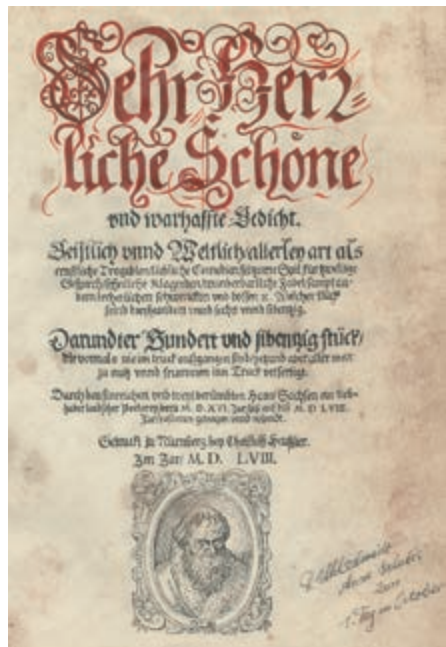 Sehr Herz-
liche Schöne
vnd warhaffte Gedicht.
Geistlich vnnd Weltlich / allerley art als
ernstliche Tragedien / liebliche Comedien / seltzame Spil / kurtzweilige
Gesprech / sehnliche Klagreden / wunderbarliche Fabel / sampt an-
dern lecherlichen schwencken vnd bossen ꝛc. Welcher stück
seind vierhundert vnnd sechs vnnd sibentzig.
Darundter Hundert vnd sibentzig stück /
die vormals nie im truck außgangen sind / yetzund aber aller welt
zu nutz vnnd frummen inn Truck verfertigt.
Durch den sinreichen vnd weyt berümbten Hans Sachsen ein lieb-
haber teudscher Poeterey vom M. D. XVI. Jar biß auff diß M. D. LVIII.
Jar
Getruckt zu Nürnberg bey Christoff Heußler.
Im Jar M. D. LVIII.
zum
1. Tag im October